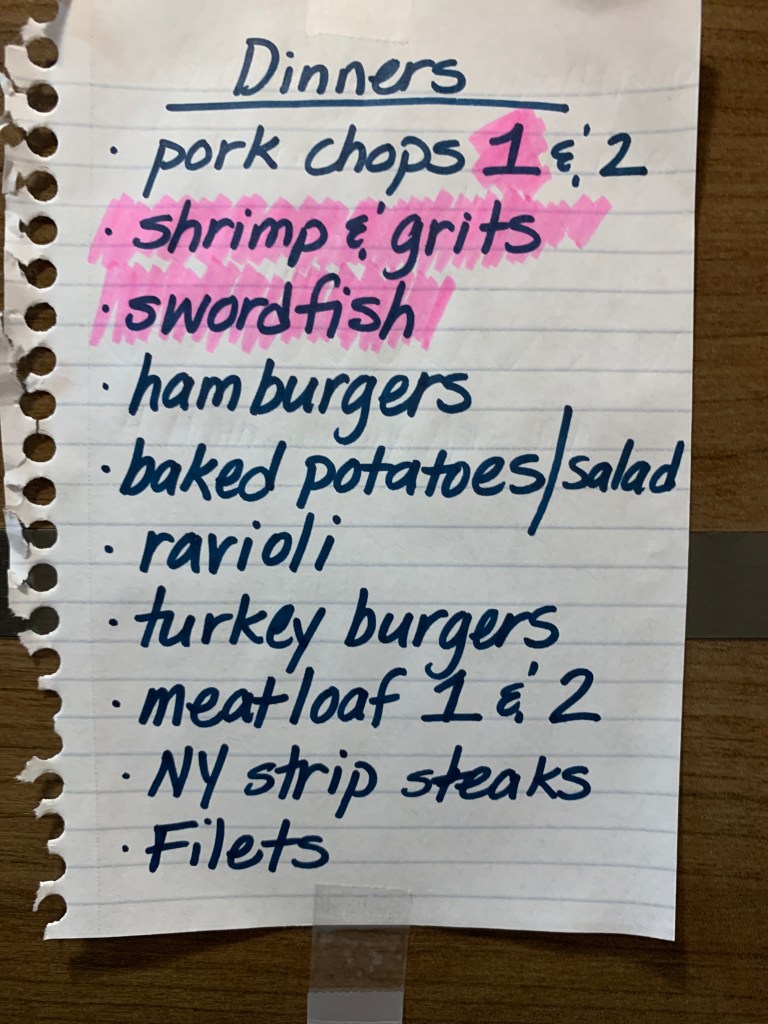 Dinners
· pork chops 1 & 2
· shrimp & grits
· swordfish
· hamburgers
· baked potatoes/salad
· ravioli
· turkey burgers
· meatloaf 1 & 2
· NY strip steaks
· Filets